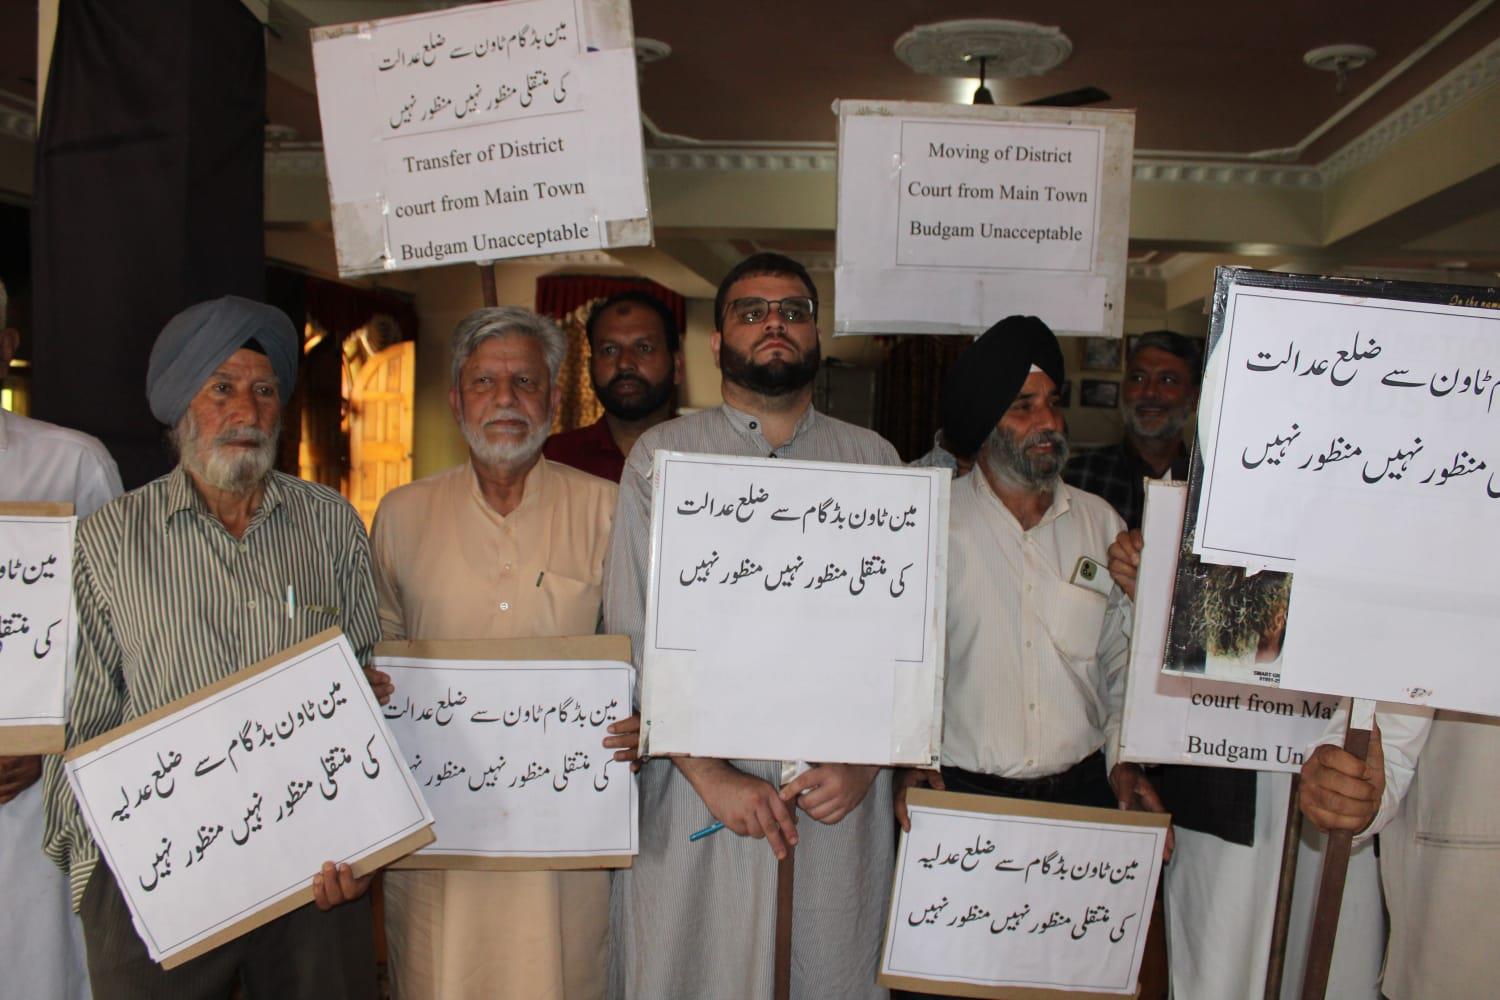 مین بڈگام ٹاون سے ضلع عدالت
کی منتقلی منظور نہیں منظور نہیں
Transfer of District
court from Main Town
Budgam Unacceptable
Moving of District
Court from Main Town
Budgam Unacceptable
In the nam
ٹاون سے ضلع عدالت
منظور نہیں منظور نہیں
SMART
court from Mai
Budgam Un
مین ٹاون بڈگام سے ضلع عدالت
کی منتقلی منظور نہیں منظور نہیں
مین ٹاو
کی منتقل
مین ٹاون بڈگام سے ضلع عدلیہ
کی منتقلی منظور نہیں منظور نہیں
مین بڈگام ٹاون سے ضلع عدالت
کی منتقلی منظور نہیں منظور
مین ٹاون بڈگام سے ضلع عدلیہ
کی منتقلی منظور نہیں منظور نہیں